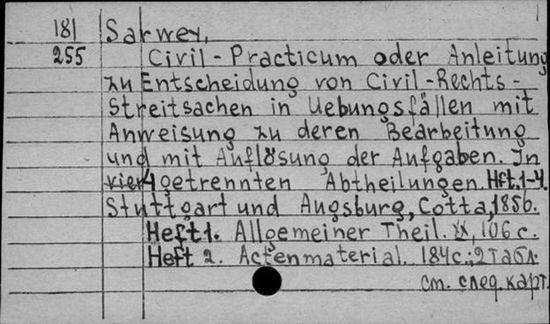 181 Sarwey,
255 Civil-Practicum oder Anleitung
zu Entscheidung von Civil-Rechts-
Streitsachen in Uebungsfällen mit
Anweisung zu deren Bearbeitung
und mit Auflösung der Aufgaben. In
vier 4 getrennten Abtheilungen. Hft. 1-4.
Stuttgart und Augsburg, Cotta, 1856.
Heft 1. Allgemeiner Theil. XX, 106 с.
Heft 2. Actenmaterial. 184 с.; 2 табл.
см. след. карт.